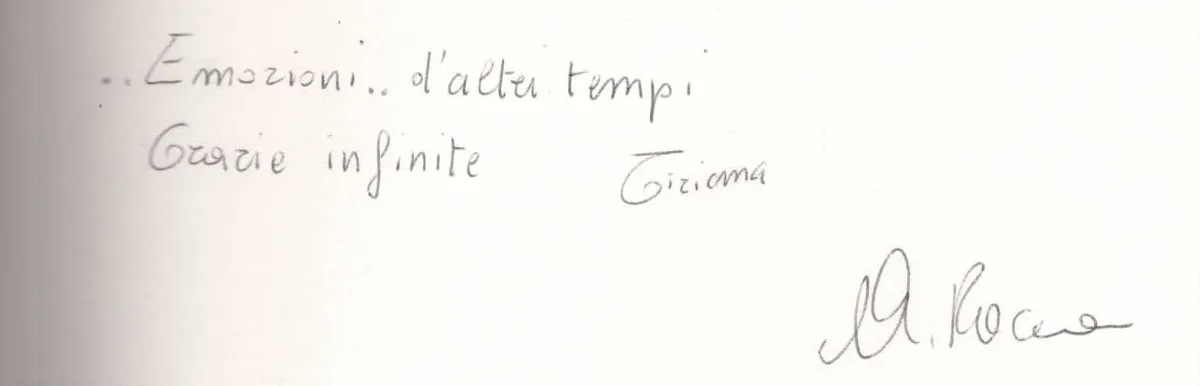 ..Emozioni.. d'altri tempi
Grazie infinite Tiziana
M.